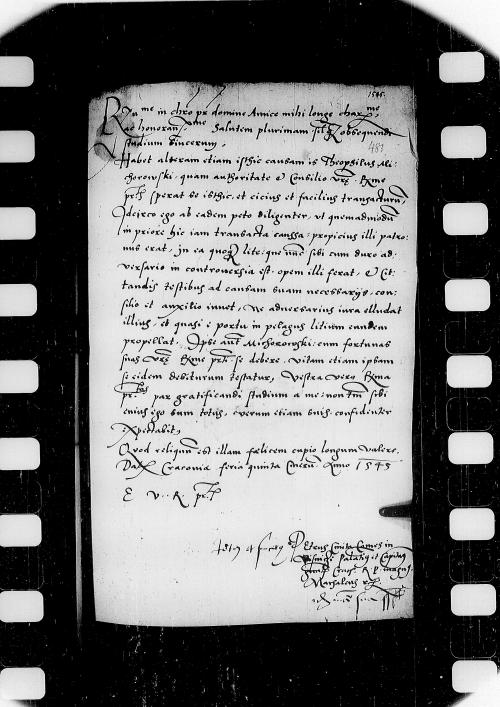 1545.
R me in chro pr domine Amice mihi longe charme
ac honoran Salutem plurimam et obsequendi
studium sincerum,
481
Habet alteram etiam isthic causam is Theophilus Mi-
chorowski, quam authoritate et Consilio vrę Rme
prtis sperat se isthic, et cicius et facilius transacturū,
Idcirco ego ab eadem peto diligenter, vt quemadmodū
in priore hic iam transacta caussa, propicius illi patro-
nus erat, in ea quoq lite, que nūc sibi cum duro ad-
versario in controversia est, opem illi ferat, et Cit-
tandis testibus ad causam suam necessarijs, con-
silio et auxilio iuvet, Ne adversarius iura elludat
illius, et quasi e portu in pelagus litium eundem
propellat, Ipse aut Michorowski, cum fortunas
suas vrę Rme prti se debere, vitam etiam ipsam
se eidem debiturum testatur, Vestra vero Rma
prtas par gratificandi studium a me, non tm sibi
cuius ego sum totus, verum etiam suis, confidenter
expectabit,
Quod reliquū est illam fœlicem cupio longum valere.
Dat Cracoviæ feria quinta Cinerū. Anno 1545
E v. R. prtis
Petrus Cmita Comes in
Visnicze Palatis et Capitas
Crac R. P. magns
Marsalcus